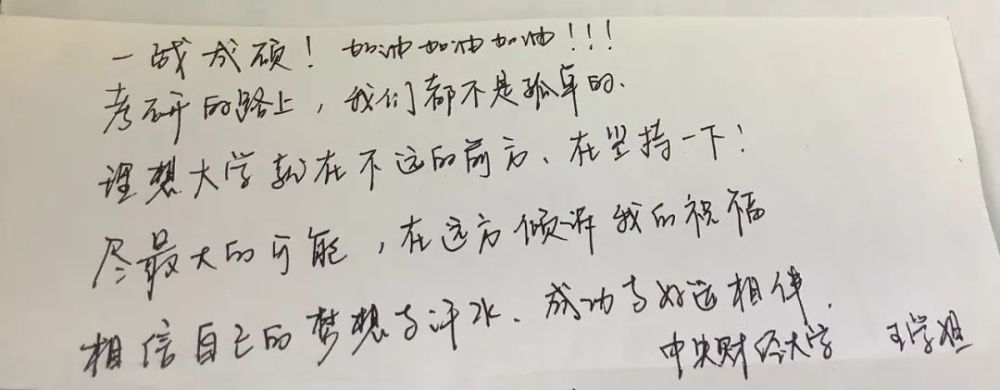 一战成硕！加油加油加油！！！
考研的路上，我们都不是孤单的.
理想大学就在不远的前方、在坚持一下！
尽最大的可能，在远方倾诉我的祝福
相信自己的梦想与汗水、成功与好运相伴.
中央财经大学 王学姐